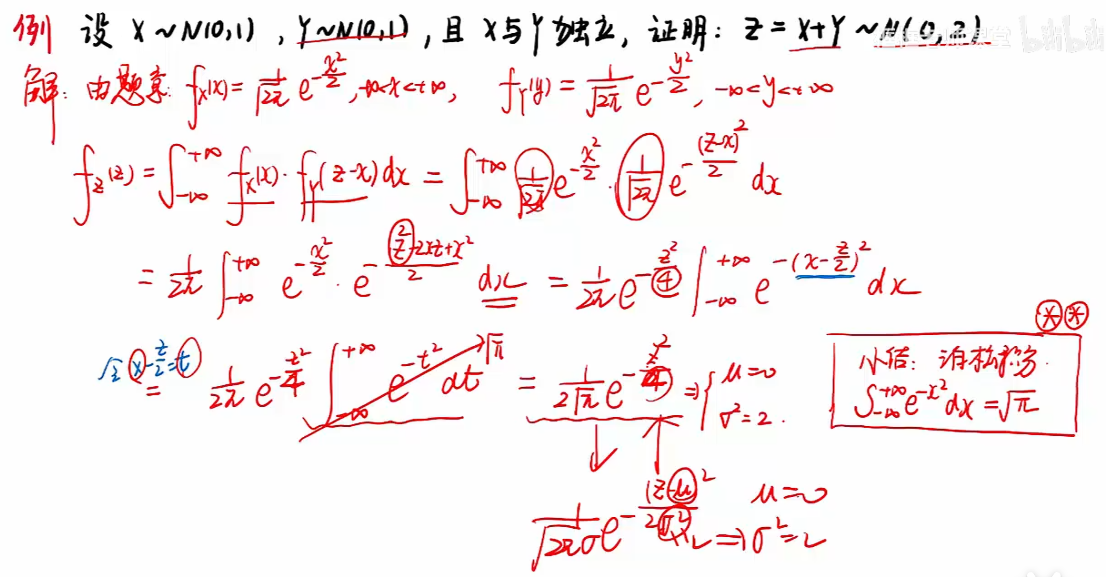 例 设 X~N(0,1), Y~N(0,1), 且 X与Y独立, 证明: Z = X+Y ~ N(0,2)
解: 由题意: f_X(x) = 1/√(2π) e^(-x²/2), -∞<x<+∞, f_Y(y) = 1/√(2π) e^(-y²/2), -∞<y<+∞
f_Z(z) = ∫_{-∞}^{+∞} f_X(x)·f_Y(z-x)dx = ∫_{-∞}^{+∞} 1/√(2π) e^(-x²/2) · 1/√(2π) e^(-(z-x)²/2) dx
= 1/2π ∫_{-∞}^{+∞} e^(-x²/2) · e^(-(z²-2xz+x²)/2) dx = 1/2π e^(-z²/4) ∫_{-∞}^{+∞} e^(-(x-z/2)²) dx
令 x-z/2=t
= 1/2π e^(-z²/4) ∫_{-∞}^{+∞} e^(-t²) dt √π = 1/(2√π) e^(-z²/4) ⇒ { μ=0 σ²=2.
小结: 泊松积分.
∫_{-∞}^{+∞} e^(-x²) dx = √π
1/(√(2π)σ) e^(-(z-μ)²/(2σ²)) μ=0
⇒ σ²=2